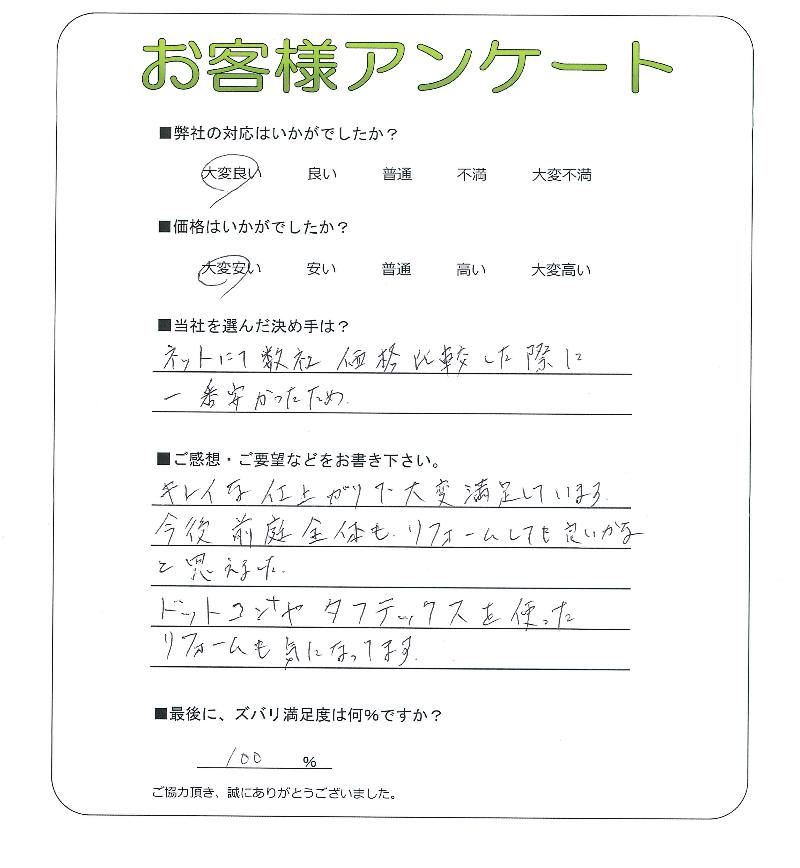 お客様アンケート
■弊社の対応はいかがでしたか？
大変良い 良い 普通 不満 大変不満
■価格はいかがでしたか？
大変安い 安い 普通 高い 大変高い
■当社を選んだ決め手は？
ネットにて数社 価格比較した際に
一番安かったため.
■ご感想・ご要望などをお書き下さい。
キレイな仕上がりで大変満足しています.
今後 前庭全体も.リフォームしても良いかな
と思えました.
ドットコンや タフテックスを使った
リフォームも気になってます.
■最後に、ズバリ満足度は何％ですか？
100 ％
ご協力頂き、誠にありがとうございました。